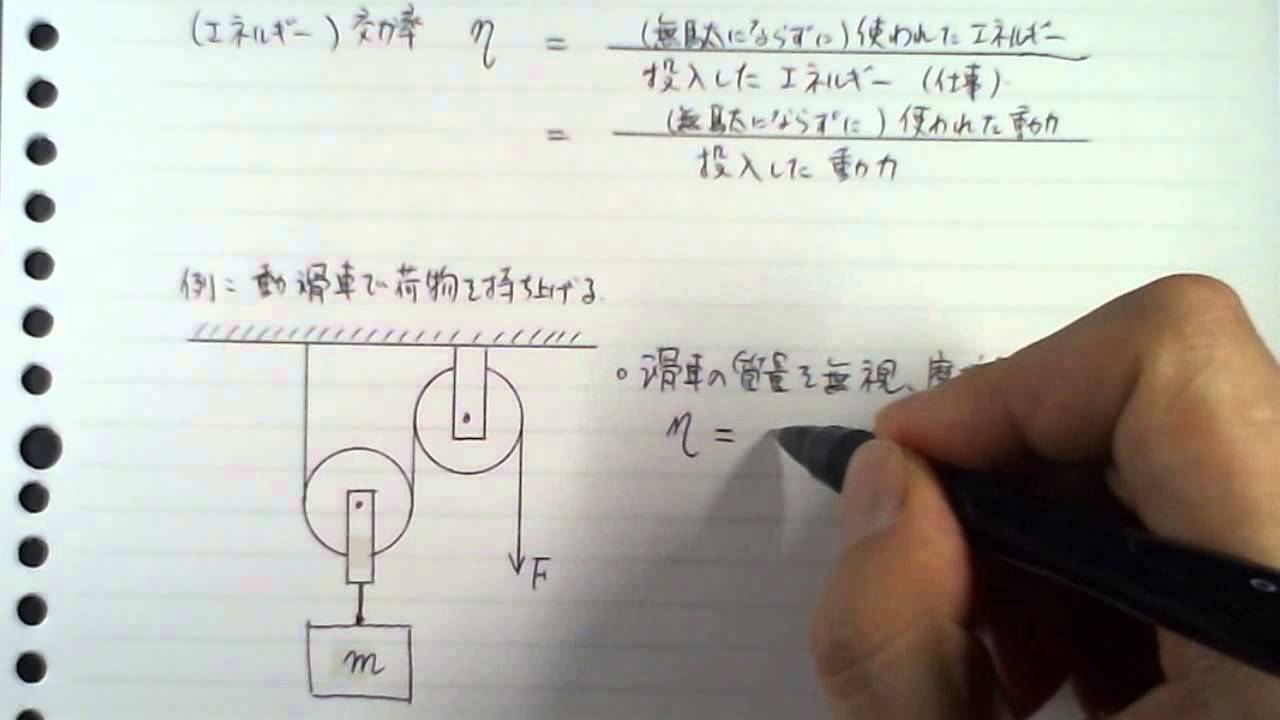 (エネルギー) 効率 η = (無駄にならずに)使われたエネルギー
投入したエネルギー (仕事)
= (無駄にならずに)使われた動力
投入した動力
例: 動滑車で荷物を持ち上げる.
。滑車の質量を無視、
η =
F
m